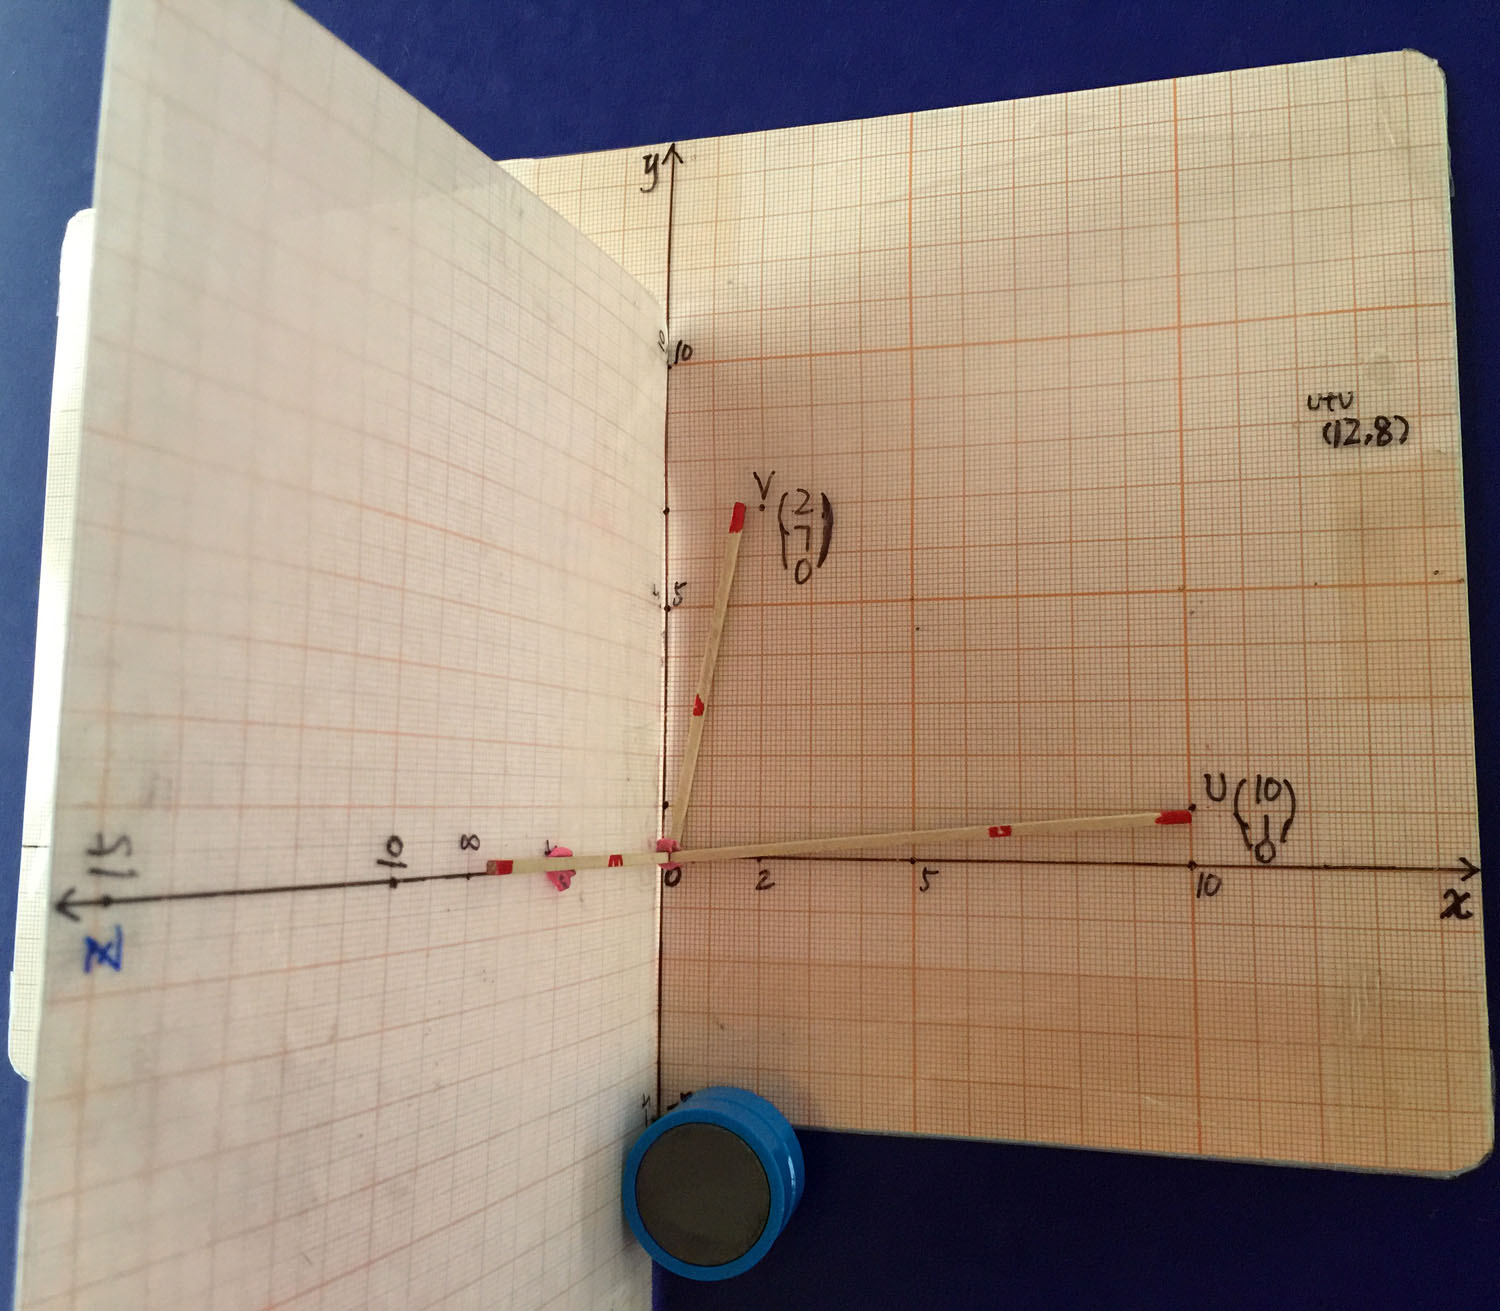 y
10
10
U+V
(12,8)
V
(2
7
0)
5
U (10
1
0)
15
10
8
0
2
5
10
x
z